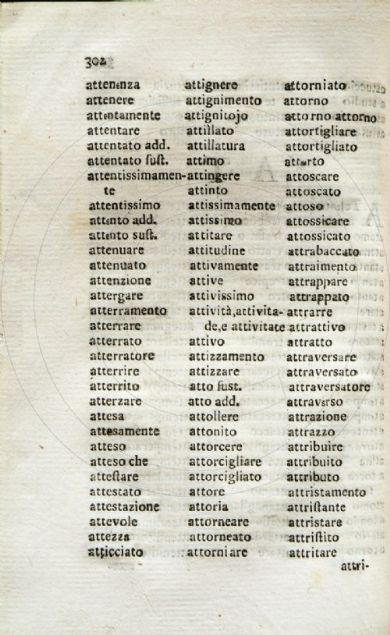 302
attenenza
attenere
attentamente
attentare
attentato add.
attentato ſuſt.
attentissimamen-
te
attentissimo
attento add.
attento suſt.
attenuare
attenuato
attenzione
attergare
atterramento
atterrare
atterrato
atterratore
atterrire
atterrito
atterzare
attesa
attesamente
atteso
atteso che
atteſtare
attestato
attestazione
attevole
attezza
atticciato
attignere
attignimento
attignitojo
attillato
attillatura
attimo
attingere
attinto
attissimamente
attissimo
attitare
attitudine
attivamente
attive
attivissimo
attività,attivita-
de,e attivitate
attivo
attizzamento
attizzare
atto ſust.
atto add.
attollere
attonito
attorcere
attorcigliare
attorcigliato
attore
attoria
attorneare
attorneato
attorniare
attorniato
attorno
attorno attorno
attortigliare
attortigliato
attorto
attoscare
attoscato
attoso
attossicare
attossicato
attrabaccato
attraimento
attrappare
attrappato
attrarre
attrattivo
attratto
attraversare
attraversato
attraversatore
attraverso
attrazione
attrazzo
attribuire
attribuito
attributo
attristamento
attriſtante
attristare
attriſtito
attritare
attri-